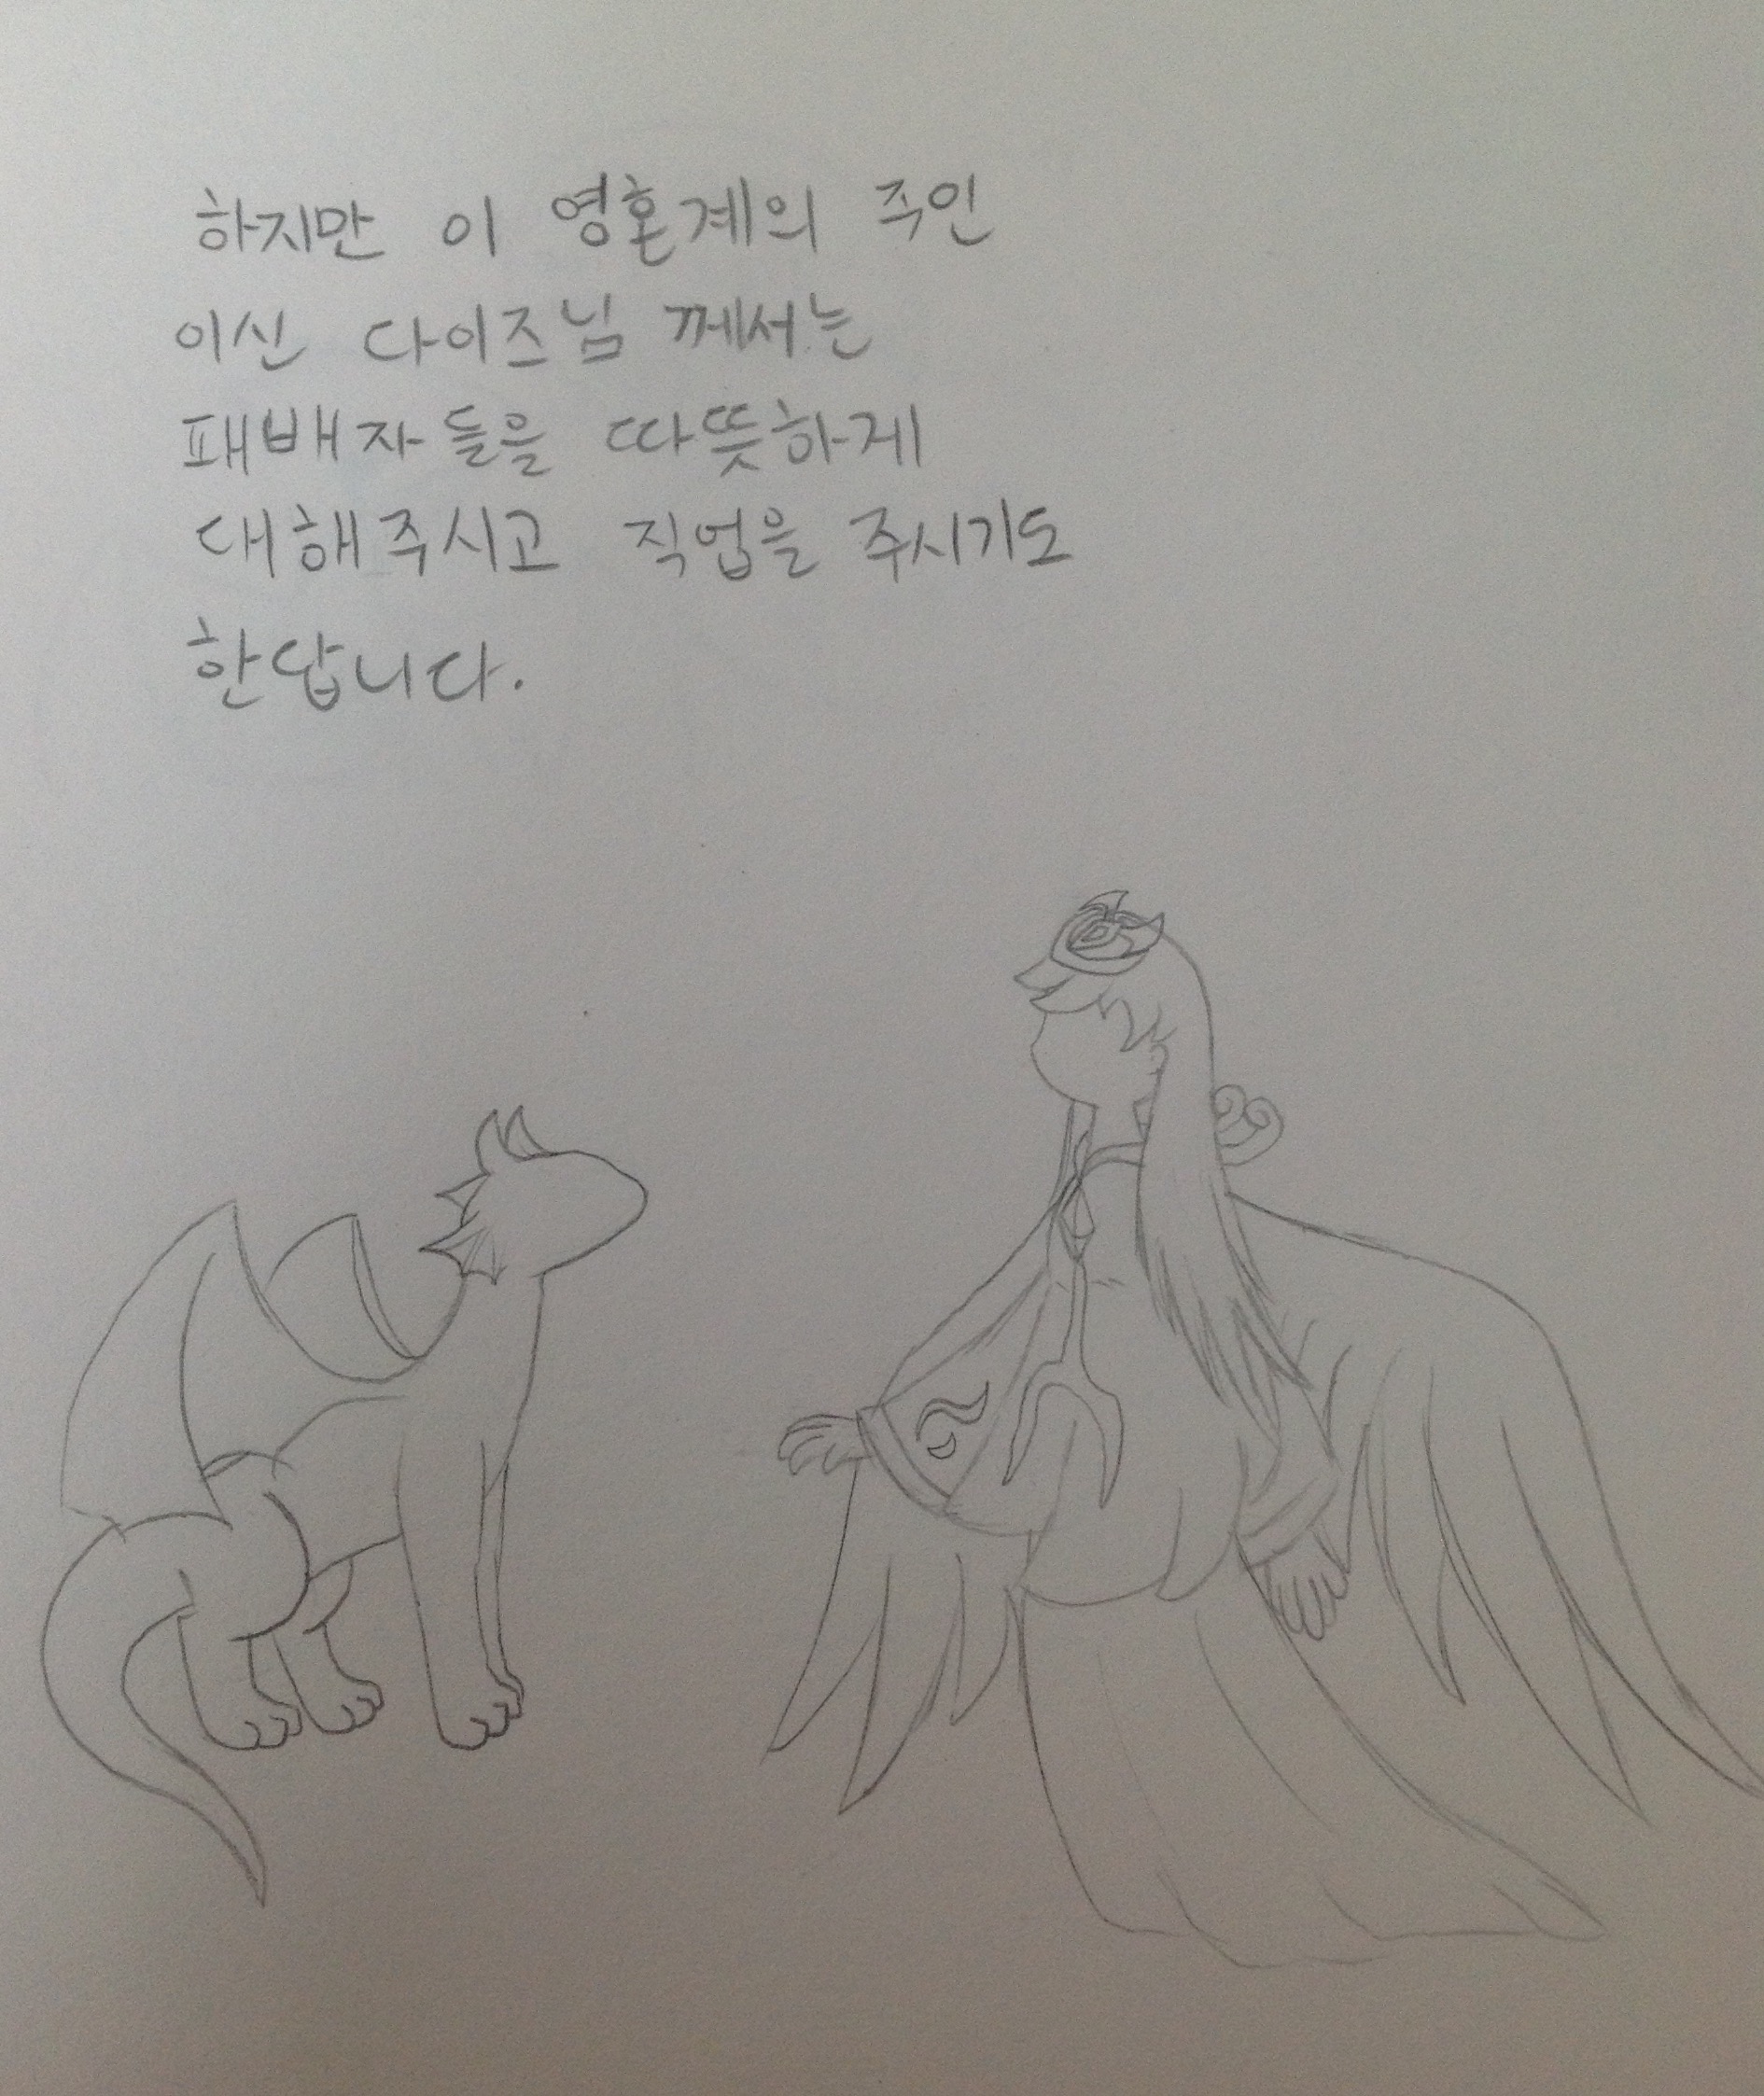 하지만 이 영혼계의 주인
이신 다이즈님 께서는
패배자들을 따뜻하게
대해주시고 직업을 주시기도
한답니다.